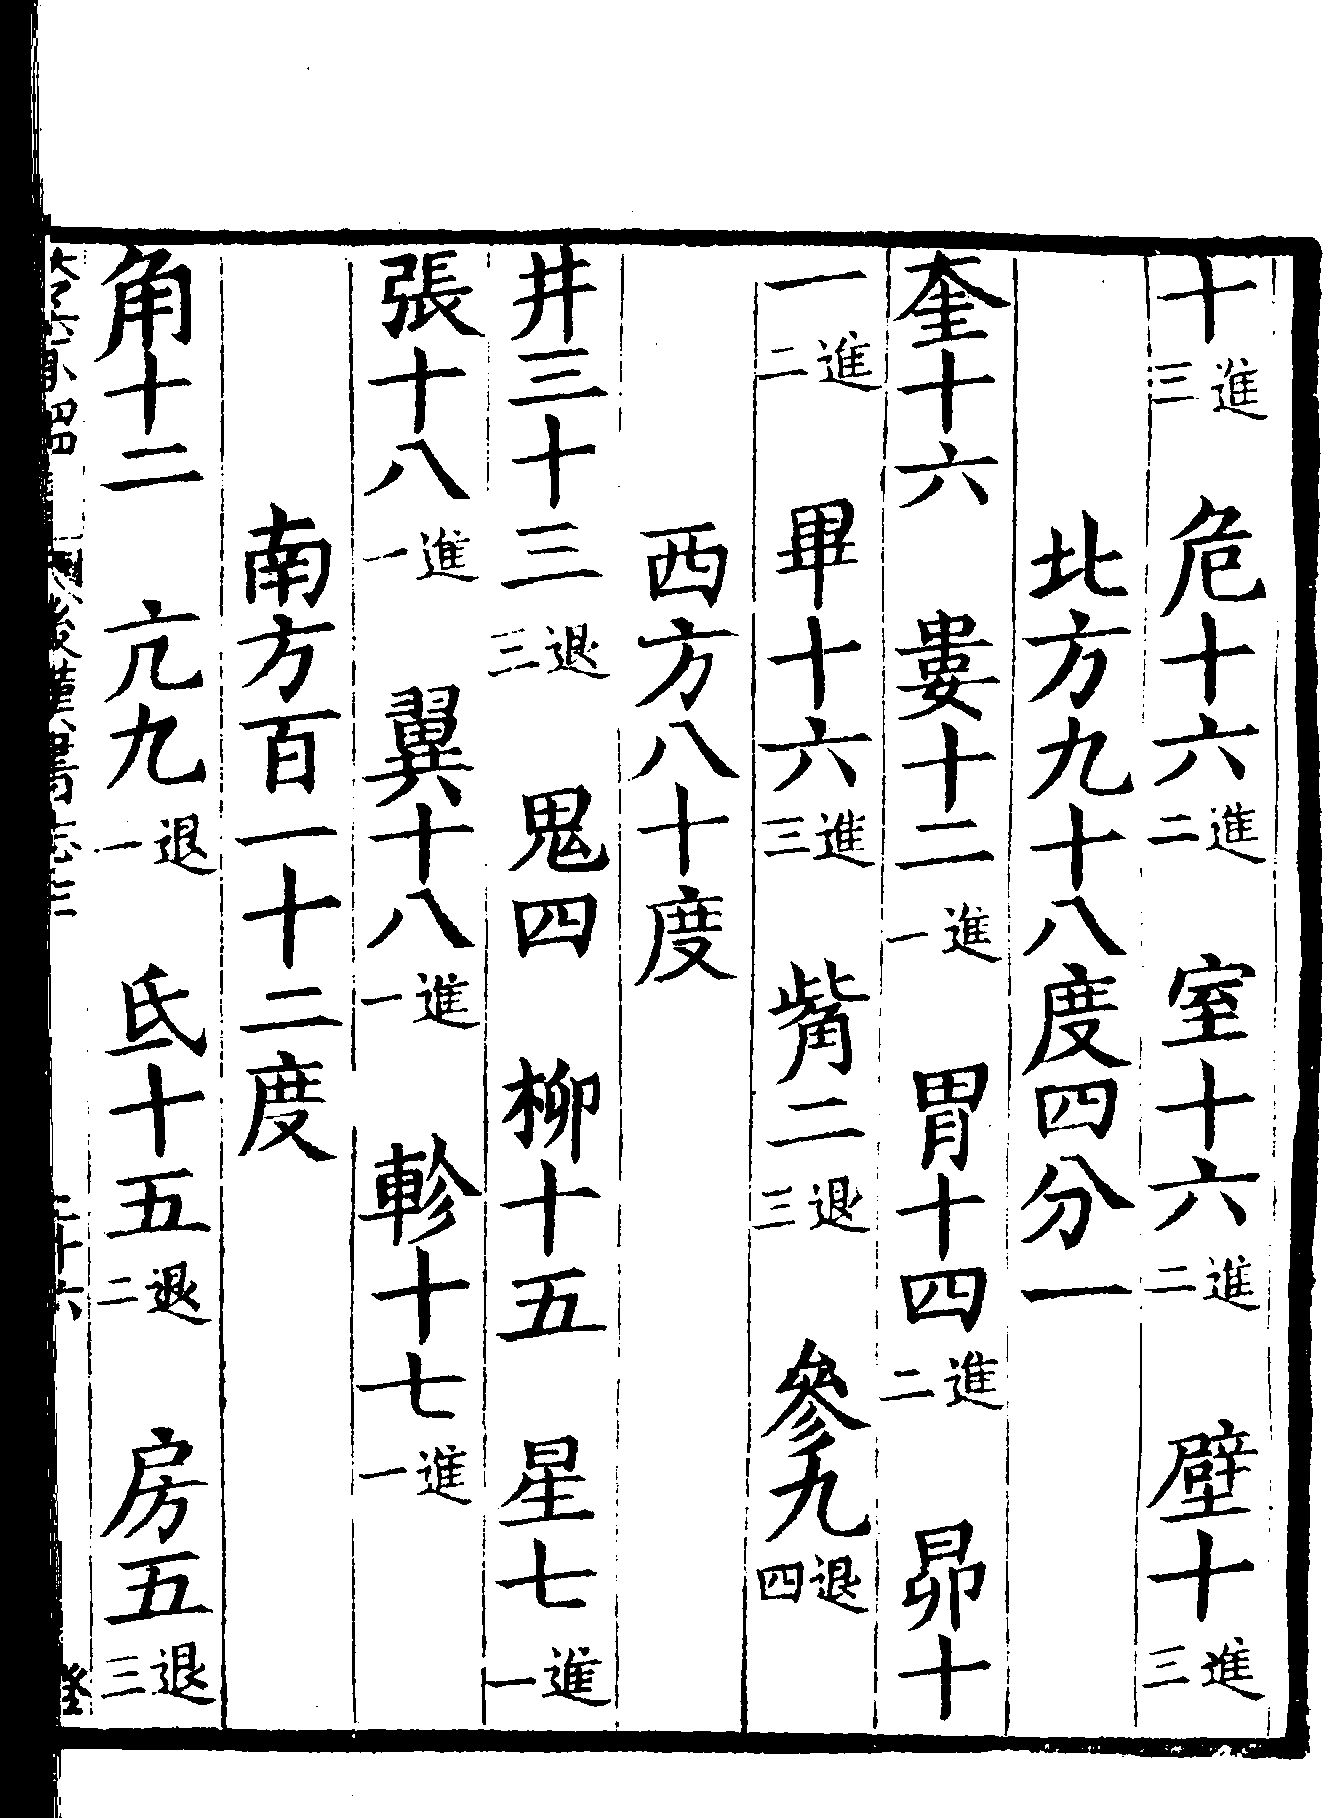 十進三　危十六進二　室十六進二　壁十進三
北方九十八度四分一
奎十六　婁十二進一　胃十四進二　昴十
一進二　畢十六進三　觜二退三　參九退四
西方八十度
井三十三退三　鬼四　柳十五　星七進一
張十八進一　翼十八進一　軫十七進一
南方百一十二度
角十二　亢九退一　氐十五退二　房五退三
後漢書志三
二十六